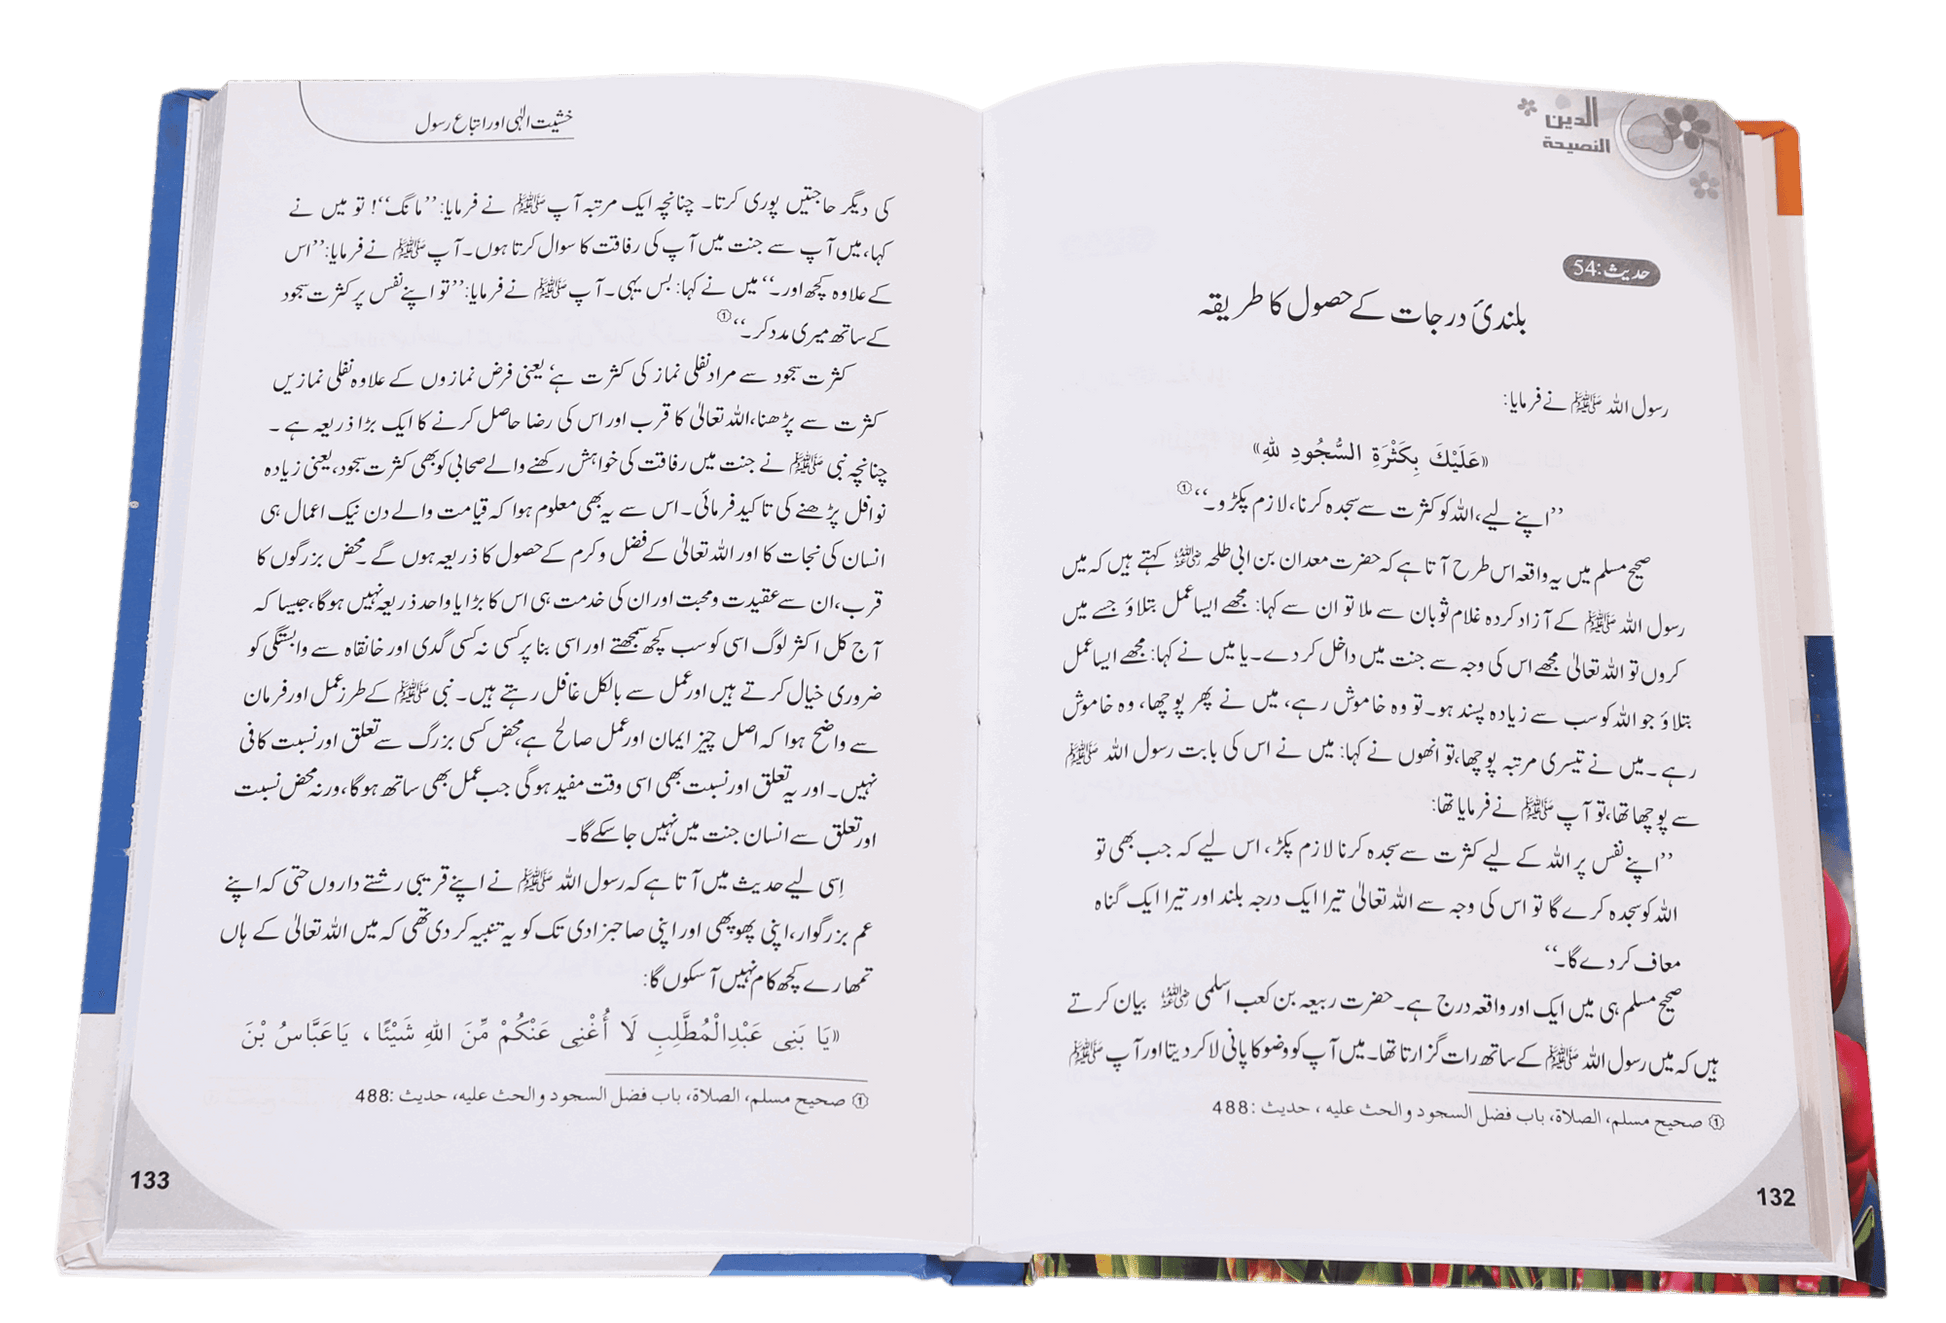 الدین
النصیحة
حدیث:54
بلندیٔ درجات کے حصول کا طریقہ
رسول اللہ ﷺ نے فرمایا:
«عَلَيْكَ بِكَثْرَةِ السُّجُودِ لِلّٰهِ»
’’اپنے لیے، اللہ کو کثرت سے سجدہ کرنا، لازم پکڑو۔‘‘①
صحیح مسلم میں یہ واقعہ اس طرح آتا ہے کہ حضرت معدان بن ابی طلحہ رضی اللہ عنہ کہتے ہیں کہ میں
رسول اللہ ﷺ کے آزاد کردہ غلام ثوبان سے ملا تو ان سے کہا: مجھے ایسا عمل بتلاؤ جسے میں
کروں تو اللہ تعالیٰ مجھے اس کی وجہ سے جنت میں داخل کر دے۔ یا میں نے کہا: مجھے ایسا عمل
بتلاؤ جو اللہ کو سب سے زیادہ پسند ہو۔ تو وہ خاموش رہے، میں نے پھر پوچھا، وہ خاموش
رہے۔ میں نے تیسری مرتبہ پوچھا، تو انھوں نے کہا: میں نے اس کی بابت رسول اللہ ﷺ
سے پوچھا تھا، تو آپ ﷺ نے فرمایا تھا:
’’اپنے نفس پر اللہ کے لیے کثرت سے سجدہ کرنا لازم پکڑ، اس لیے کہ جب بھی تو
اللہ کو سجدہ کرے گا تو اس کی وجہ سے اللہ تعالیٰ تیرا ایک درجہ بلند اور تیرا ایک گناہ
معاف کر دے گا۔‘‘
صحیح مسلم ہی میں ایک اور واقعہ درج ہے۔ حضرت ربیعہ بن کعب اسلمی رضی اللہ عنہ بیان کرتے
ہیں کہ میں رسول اللہ ﷺ کے ساتھ رات گزارتا تھا۔ میں آپ کو وضو کا پانی لا کر دیتا اور آپ ﷺ
① صحیح مسلم، الصلاة، باب فضل السجود والحث علیه، حدیث: 488
132
خشیت الٰہی اور اتباع رسول
کی دیگر حاجتیں پوری کرتا۔ چنانچہ ایک مرتبہ آپ ﷺ نے فرمایا: ’’مانگ‘‘! تو میں نے
کہا، میں آپ سے جنت میں آپ کی رفاقت کا سوال کرتا ہوں۔ آپ ﷺ نے فرمایا: ’’اس
کے علاوہ کچھ اور۔‘‘ میں نے کہا: بس یہی۔ آپ ﷺ نے فرمایا: ’’تو اپنے نفس پر کثرت سجود
کے ساتھ میری مدد کر۔‘‘①
کثرت سجود سے مراد نفلی نماز کی کثرت ہے، یعنی فرض نمازوں کے علاوہ نفلی نمازیں
کثرت سے پڑھنا، اللہ تعالیٰ کا قرب اور اس کی رضا حاصل کرنے کا ایک بڑا ذریعہ ہے۔
چنانچہ نبی ﷺ نے جنت میں رفاقت کی خواہش رکھنے والے صحابی کو بھی کثرت سجود، یعنی زیادہ
نوافل پڑھنے کی تاکید فرمائی۔ اس سے یہ بھی معلوم ہوا کہ قیامت والے دن نیک اعمال ہی
انسان کی نجات کا اور اللہ تعالیٰ کے فضل و کرم کے حصول کا ذریعہ ہوں گے۔ محض بزرگوں کا
قرب، ان سے عقیدت و محبت اور ان کی خدمت ہی اس کا بڑا یا واحد ذریعہ نہیں ہو گا، جیسا کہ
آج کل اکثر لوگ اسی کو سب کچھ سمجھتے اور اسی بنا پر کسی نہ کسی گدی اور خانقاہ سے وابستگی کو
ضروری خیال کرتے ہیں اور عمل سے بالکل غافل رہتے ہیں۔ نبی ﷺ کے طرز عمل اور فرمان
سے واضح ہوا کہ اصل چیز ایمان اور عمل صالح ہے، محض کسی بزرگ سے تعلق اور نسبت کافی
نہیں۔ اور یہ تعلق اور نسبت بھی اسی وقت مفید ہو گی جب عمل بھی ساتھ ہو گا، ورنہ محض نسبت
اور تعلق سے انسان جنت میں نہیں جا سکے گا۔
اِسی لیے حدیث میں آتا ہے کہ رسول اللہ ﷺ نے اپنے قریبی رشتے داروں حتی کہ اپنے
عم بزرگوار، اپنی پھوپھی اور اپنی صاحبزادی تک کو یہ تنبیہ کر دی تھی کہ میں اللہ تعالیٰ کے ہاں
تمھارے کچھ کام نہیں آ سکوں گا:
«يَا بَنِي عَبْدِالْمُطَّلِبِ لَا أُغْنِي عَنْكُمْ مِّنَ اللهِ شَيْئًا، يَاعَبَّاسُ بْنَ
① صحیح مسلم، الصلاة، باب فضل السجود والحث علیه، حدیث: 488
133